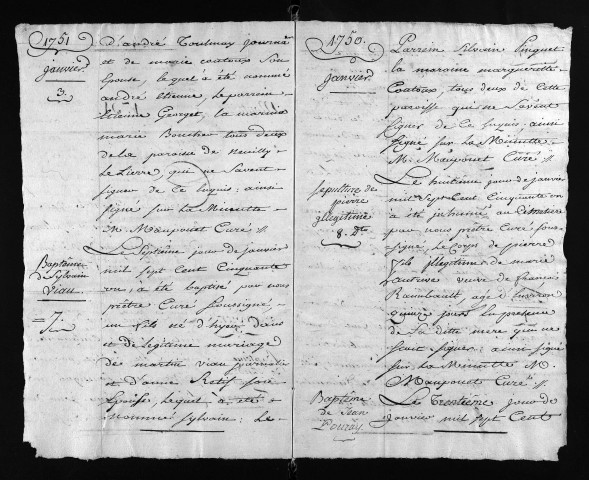 1751
janvier
3
D'andré Toulmay journa
et de marie coutoux Son
Epouse, lequel a été nommé
andré Etienne, le parrein
Etienne Georget, la marraine
marie Boucher tous deux
de la paroisse de neuilly
Le Lierre, qui ne Savent
Signer de Ce Enquis; ainsi
Signé Sur la Minutte
M. Mauponet Curé //
Baptême
de Sylvain
Viau
7
Le Septième jour de janvier
mil Sept Cent Cinquante
un, a été baptisé par nous
prêtre Curé Soussigné,
un fils né d'hyer dans
et de légitime mariage
de martin Viau journalier
et d'anne Rotif Son
Epouse Lequel a été
Nommé Sylvain: Le
1750.
Janvier
Parrein Silvain Pinguet
la maraine marguerite
Coutoux, tous deux de Cette
paroisse qui ne Savent
Signer de Ce Enquis, ainsi
Signé Sur La Minutte
M. Mauponet Curé //
Sepulture de
pierre
illegitime
8.
Le huitième jour de janvier
mil Sept Cent Cinquante un
a été inhumé au Cimetière
par nous prêtre Curé Sous-
signé, Le Corps de pierre
fils illégitime de marie
veuve de françois
Rambault, agé d'Environ
quinze jours En présence
de La ditte mere qui ne
Sçait Signer: ainsi Signé
Sur La Minutte M.
Mauponet Curé //
Baptême
de Jean
Le Trentième jour de
Janvier mil Sept Cent